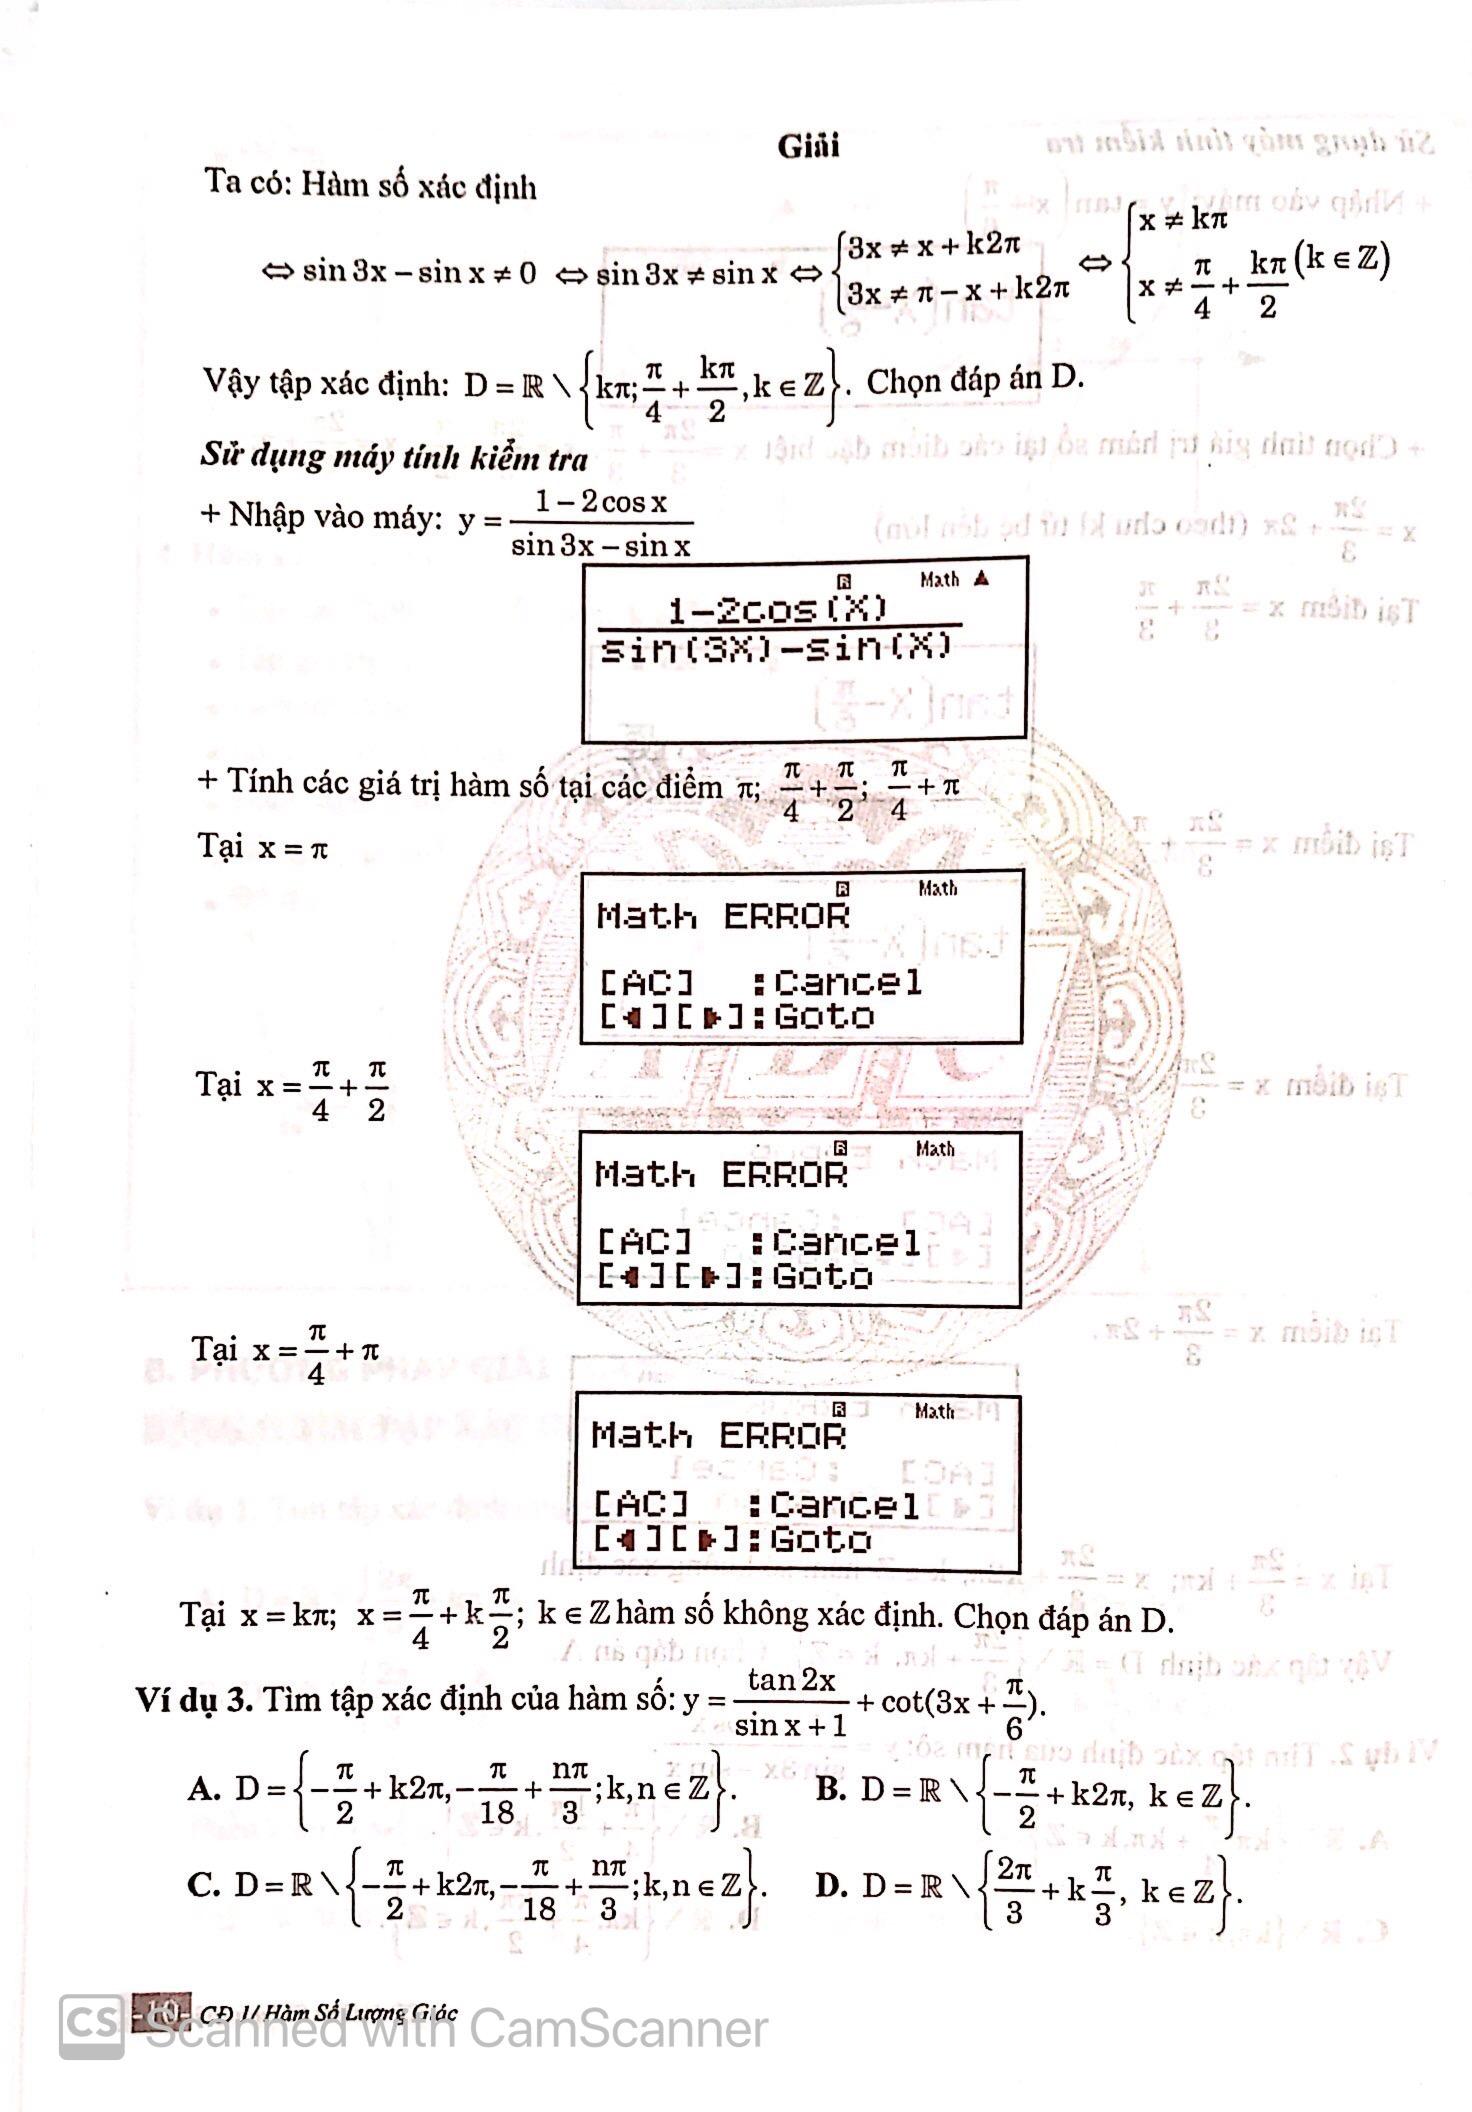 Giải
Ta có: Hàm số xác định
⇔ sin 3x – sin x ≠ 0 ⇔ sin 3x ≠ sin x ⇔ {3x ≠ x + k2π; 3x ≠ π – x + k2π ⇔ {x ≠ kπ; x ≠ π/4 + kπ/2 (k ∈ ℤ)
Vậy tập xác định: D = ℝ \ {kπ; π/4 + kπ/2, k ∈ ℤ}. Chọn đáp án D.
Sử dụng máy tính kiểm tra
+ Nhập vào máy: y = (1 – 2cos x)/(sin 3x – sin x)
R Math ▲
1–2cos(X)
sin(3X)–sin(X)
+ Tính các giá trị hàm số tại các điểm π; π/4 + π/2; π/4 + π
Tại x = π
R Math
Math ERROR
[AC] :Cancel
[◀][▶]:Goto
Tại x = π/4 + π/2
R Math
Math ERROR
[AC] :Cancel
[◀][▶]:Goto
Tại x = π/4 + π
R Math
Math ERROR
[AC] :Cancel
[◀][▶]:Goto
Tại x = kπ; x = π/4 + k π/2; k ∈ ℤ hàm số không xác định. Chọn đáp án D.
Ví dụ 3. Tìm tập xác định của hàm số: y = tan 2x/(sin x + 1) + cot(3x + π/6).
A. D = {–π/2 + k2π, –π/18 + nπ/3; k, n ∈ ℤ}. B. D = ℝ \ {–π/2 + k2π, k ∈ ℤ}.
C. D = ℝ \ {–π/2 + k2π, –π/18 + nπ/3; k, n ∈ ℤ}. D. D = ℝ \ {2π/3 + k π/3, k ∈ ℤ}.
-10- CĐ 1/ Hàm Số Lượng Giác
CS Scanned with CamScanner